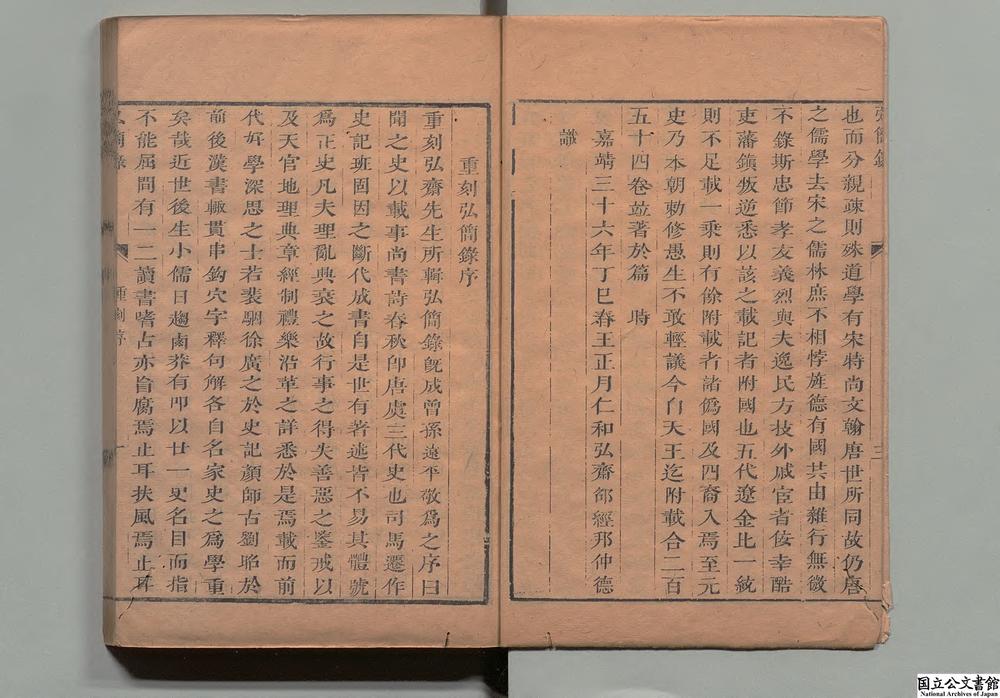 也而分親疎則殊道學有宋特尚文翰唐世所同故仍唐
之儒學去宋之儒林庶不相悖旌德有國共由雜行無微
不錄斯忠節孝友義烈與夫逸民方技外戚宦者佞幸酷
吏藩鎭叛逆悉以該之載記者附國也五代遼金比一統
則不足載一乘則有餘附載者諸僞國及四裔入焉至元
史乃本朝勅修愚生不敢輕議今自天王迄附載合二百
五十四卷竝著於篇 時
嘉靖三十六年丁巳春王正月仁和弘齋邵經邦仲德
識
重刻弘簡錄序
重刻弘齋先生所輯弘簡錄旣成曾孫遠平敬爲之序曰
聞之史以載事尚書詩春秋卽唐虞三代史也司馬遷作
史記班固因之斷代成書自是世有著述皆不易其體號
爲正史凡夫理亂典衰之故行事之得失善惡之鑒戒以
及天官地理典章經制禮樂沿革之詳悉於是焉載而前
代好學深思之士若裴駰徐廣之於史記顏師古劉昭於
前後漢書輙貫串鈎穴字釋句解各自名家史之爲學重
矣哉近世後生小儒日趨鹵莽有叩以廿一史名目而指
不能屈間有一二讀書嗜古亦旨腐焉止耳扶風焉止耳